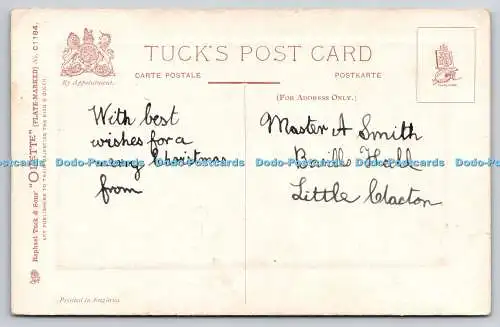 TUCK'S POST CARD
CARTE POSTALE
POSTKARTE
By Appointment.
(FOR ADDRESS ONLY.)
Raphael Tuck & Sons' "OILETTE" [PLATE-MARKED] No. C1184.
ART PUBLISHERS TO THEIR MAJESTIES THE KING & QUEEN
With best
wishes for a
merry Christmas
from
Master A Smith
Hall
Little Clacton
Dodo-Postcards Dodo-Postcards Dodo-Postcards Dodo-Postcards Dodo-Postcards
Printed in England